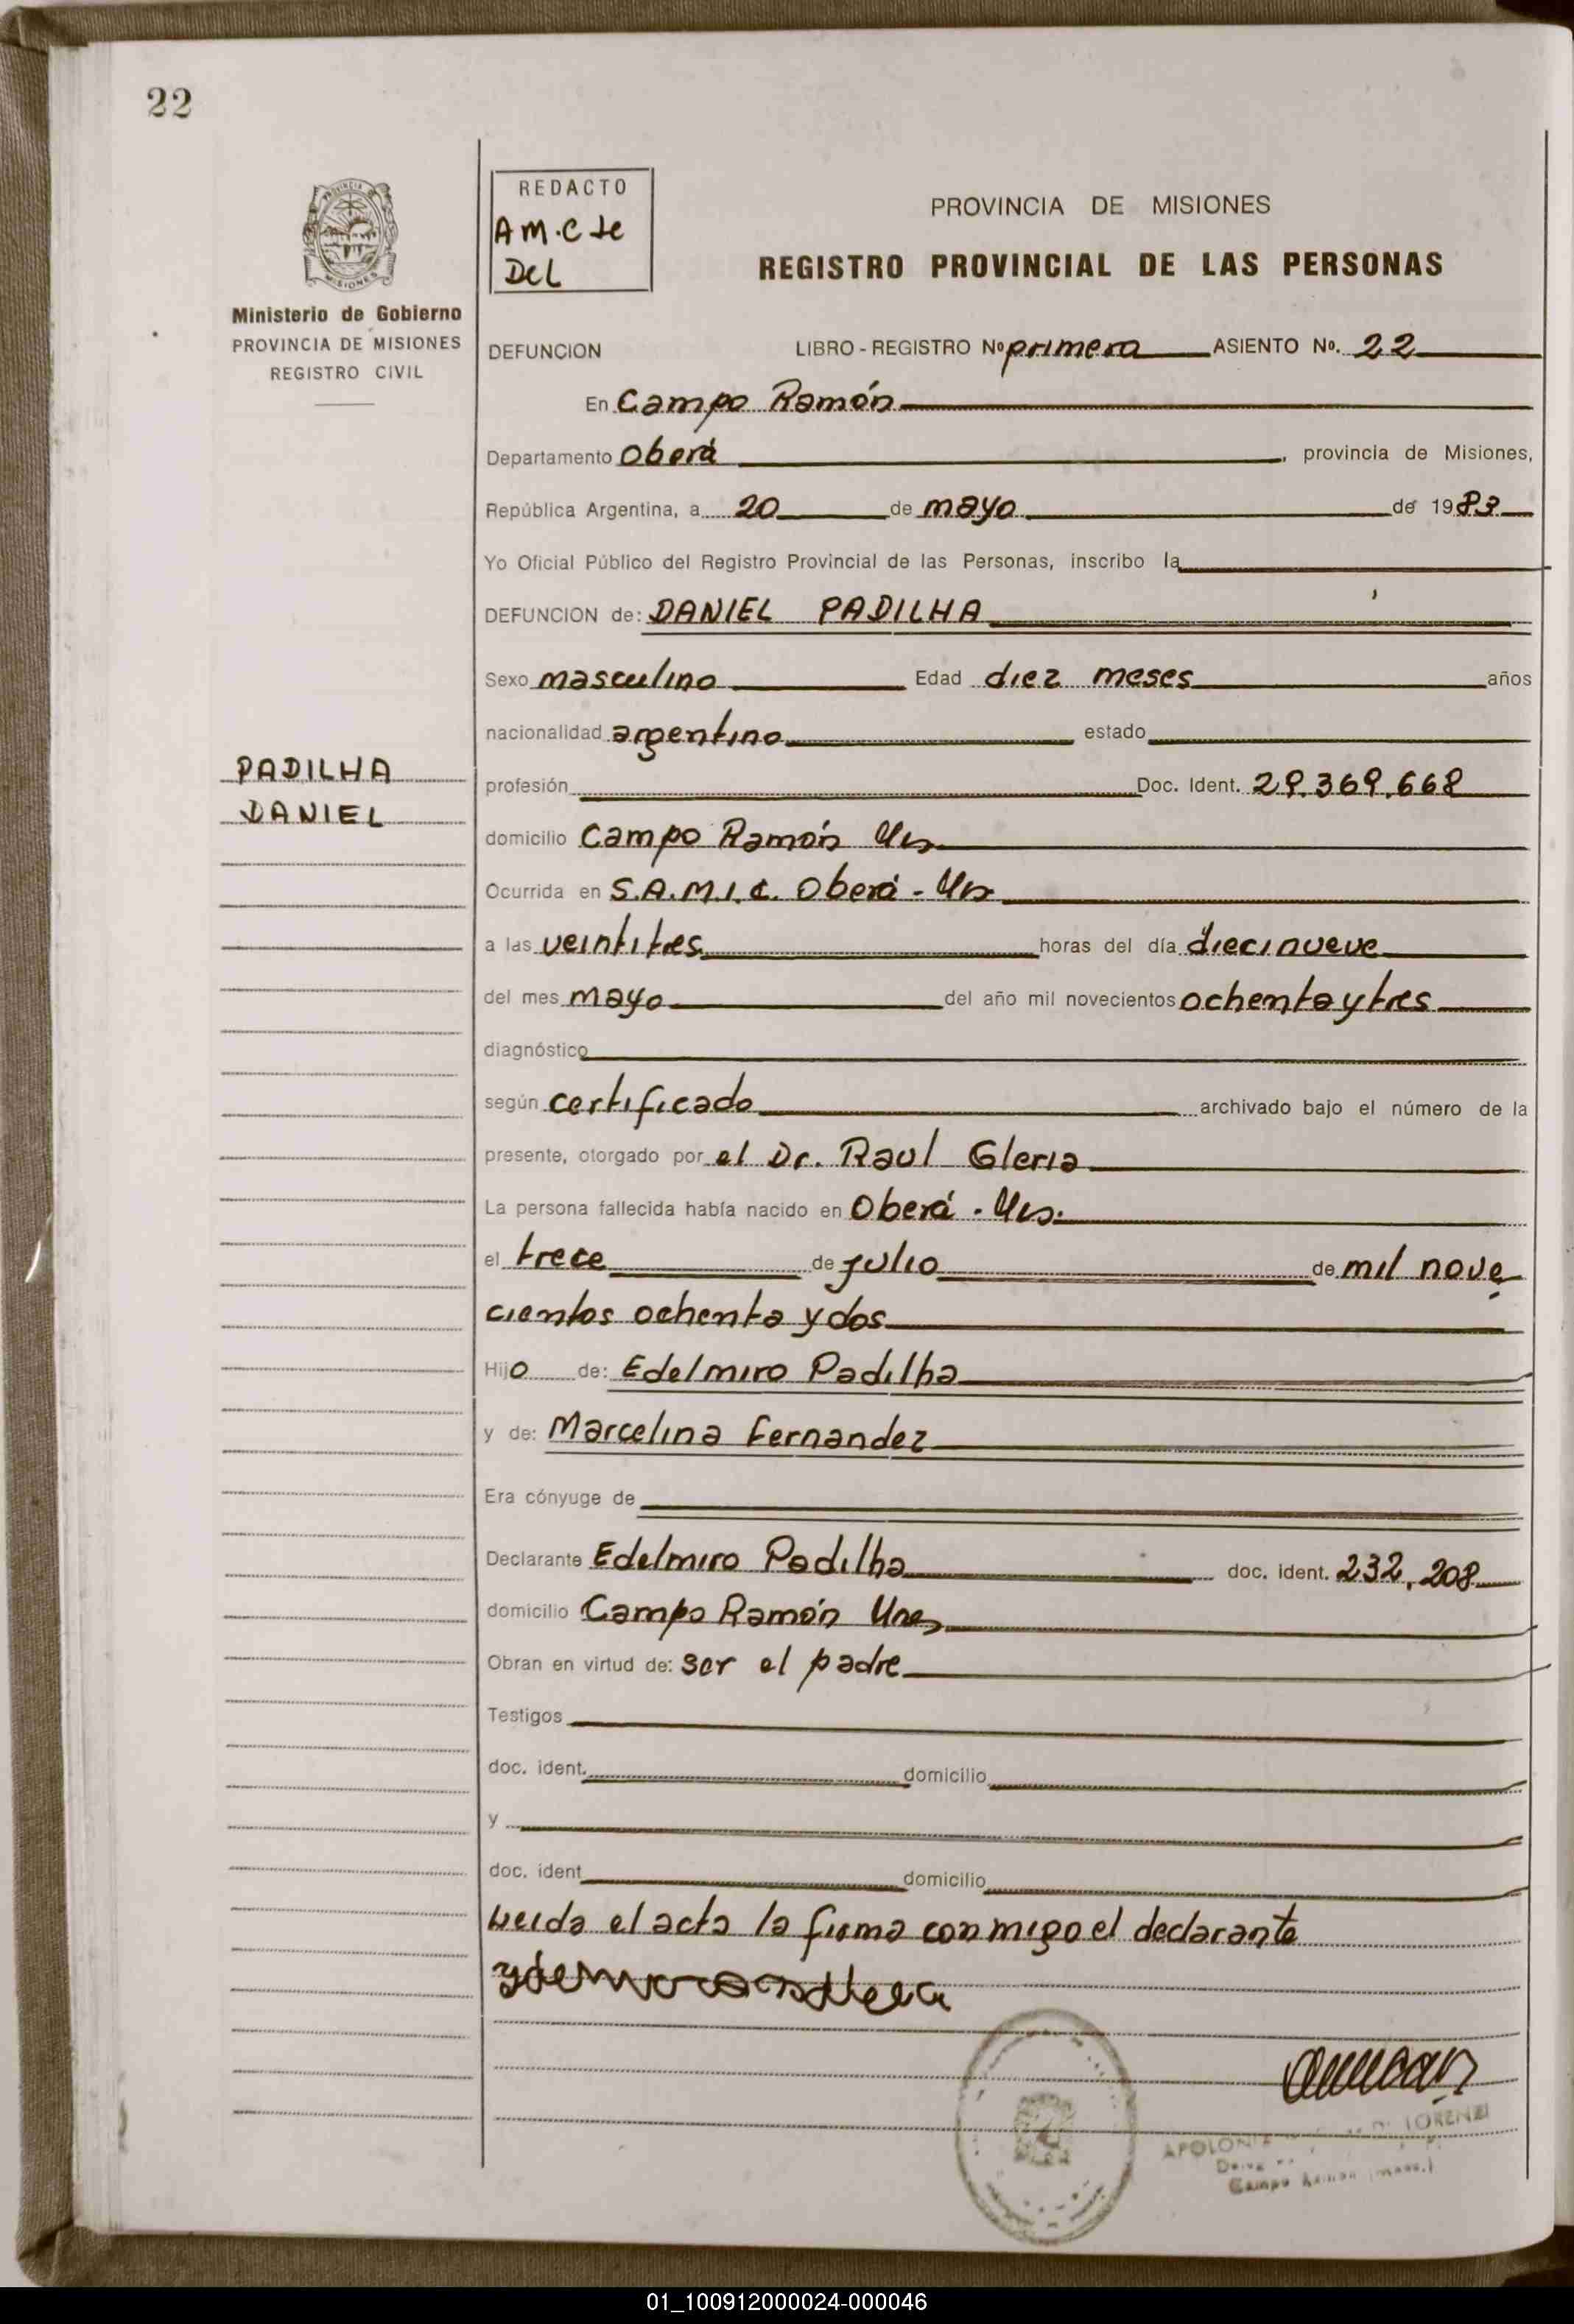 22
REDACTO
A M. C de
DCL
PROVINCIA DE MISIONES
REGISTRO PROVINCIAL DE LAS PERSONAS
PROVINCIA DE
MISIONES
Ministerio de Gobierno
PROVINCIA DE MISIONES
REGISTRO CIVIL
DEFUNCION LIBRO - REGISTRO Nº primero ASIENTO Nº. 22
En Campo Ramón
Departamento Oberá, provincia de Misiones,
República Argentina, a 20 de mayo de 1983
Yo Oficial Público del Registro Provincial de las Personas, inscribo la
DEFUNCION de: DANIEL PADILHA
Sexo masculino Edad diez meses años
nacionalidad argentino estado
PADILHA
DANIEL
profesión Doc. Ident. 29.369.668
domicilio Campo Ramón Mis
Ocurrida en S.A.M.I.C. Oberá - Mis
a las veintitres horas del día diecinueve
del mes mayo del año mil novecientos ochenta y tres
diagnóstico
según certificado archivado bajo el número de la
presente, otorgado por el Dr. Raul Gleria
La persona fallecida había nacido en Oberá - Mis.
el trece de julio de mil nove
cientos ochenta y dos
Hijo de: Edelmiro Padilha
y de: Marcelina Fernandez
Era cónyuge de
Declarante Edelmiro Padilha doc. ident. 232.208
domicilio Campo Ramón Mnes
Obran en virtud de: ser el padre
Testigos
doc. ident. domicilio
y
doc. ident domicilio
Leida el acta la firma conmigo el declarante
APOLONI DI LORENZI
Campo Ramón
01_100912000024-000046